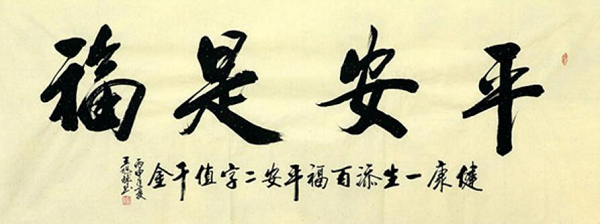 平安是福
健康一生添百福平安二字值千金
丙申夏